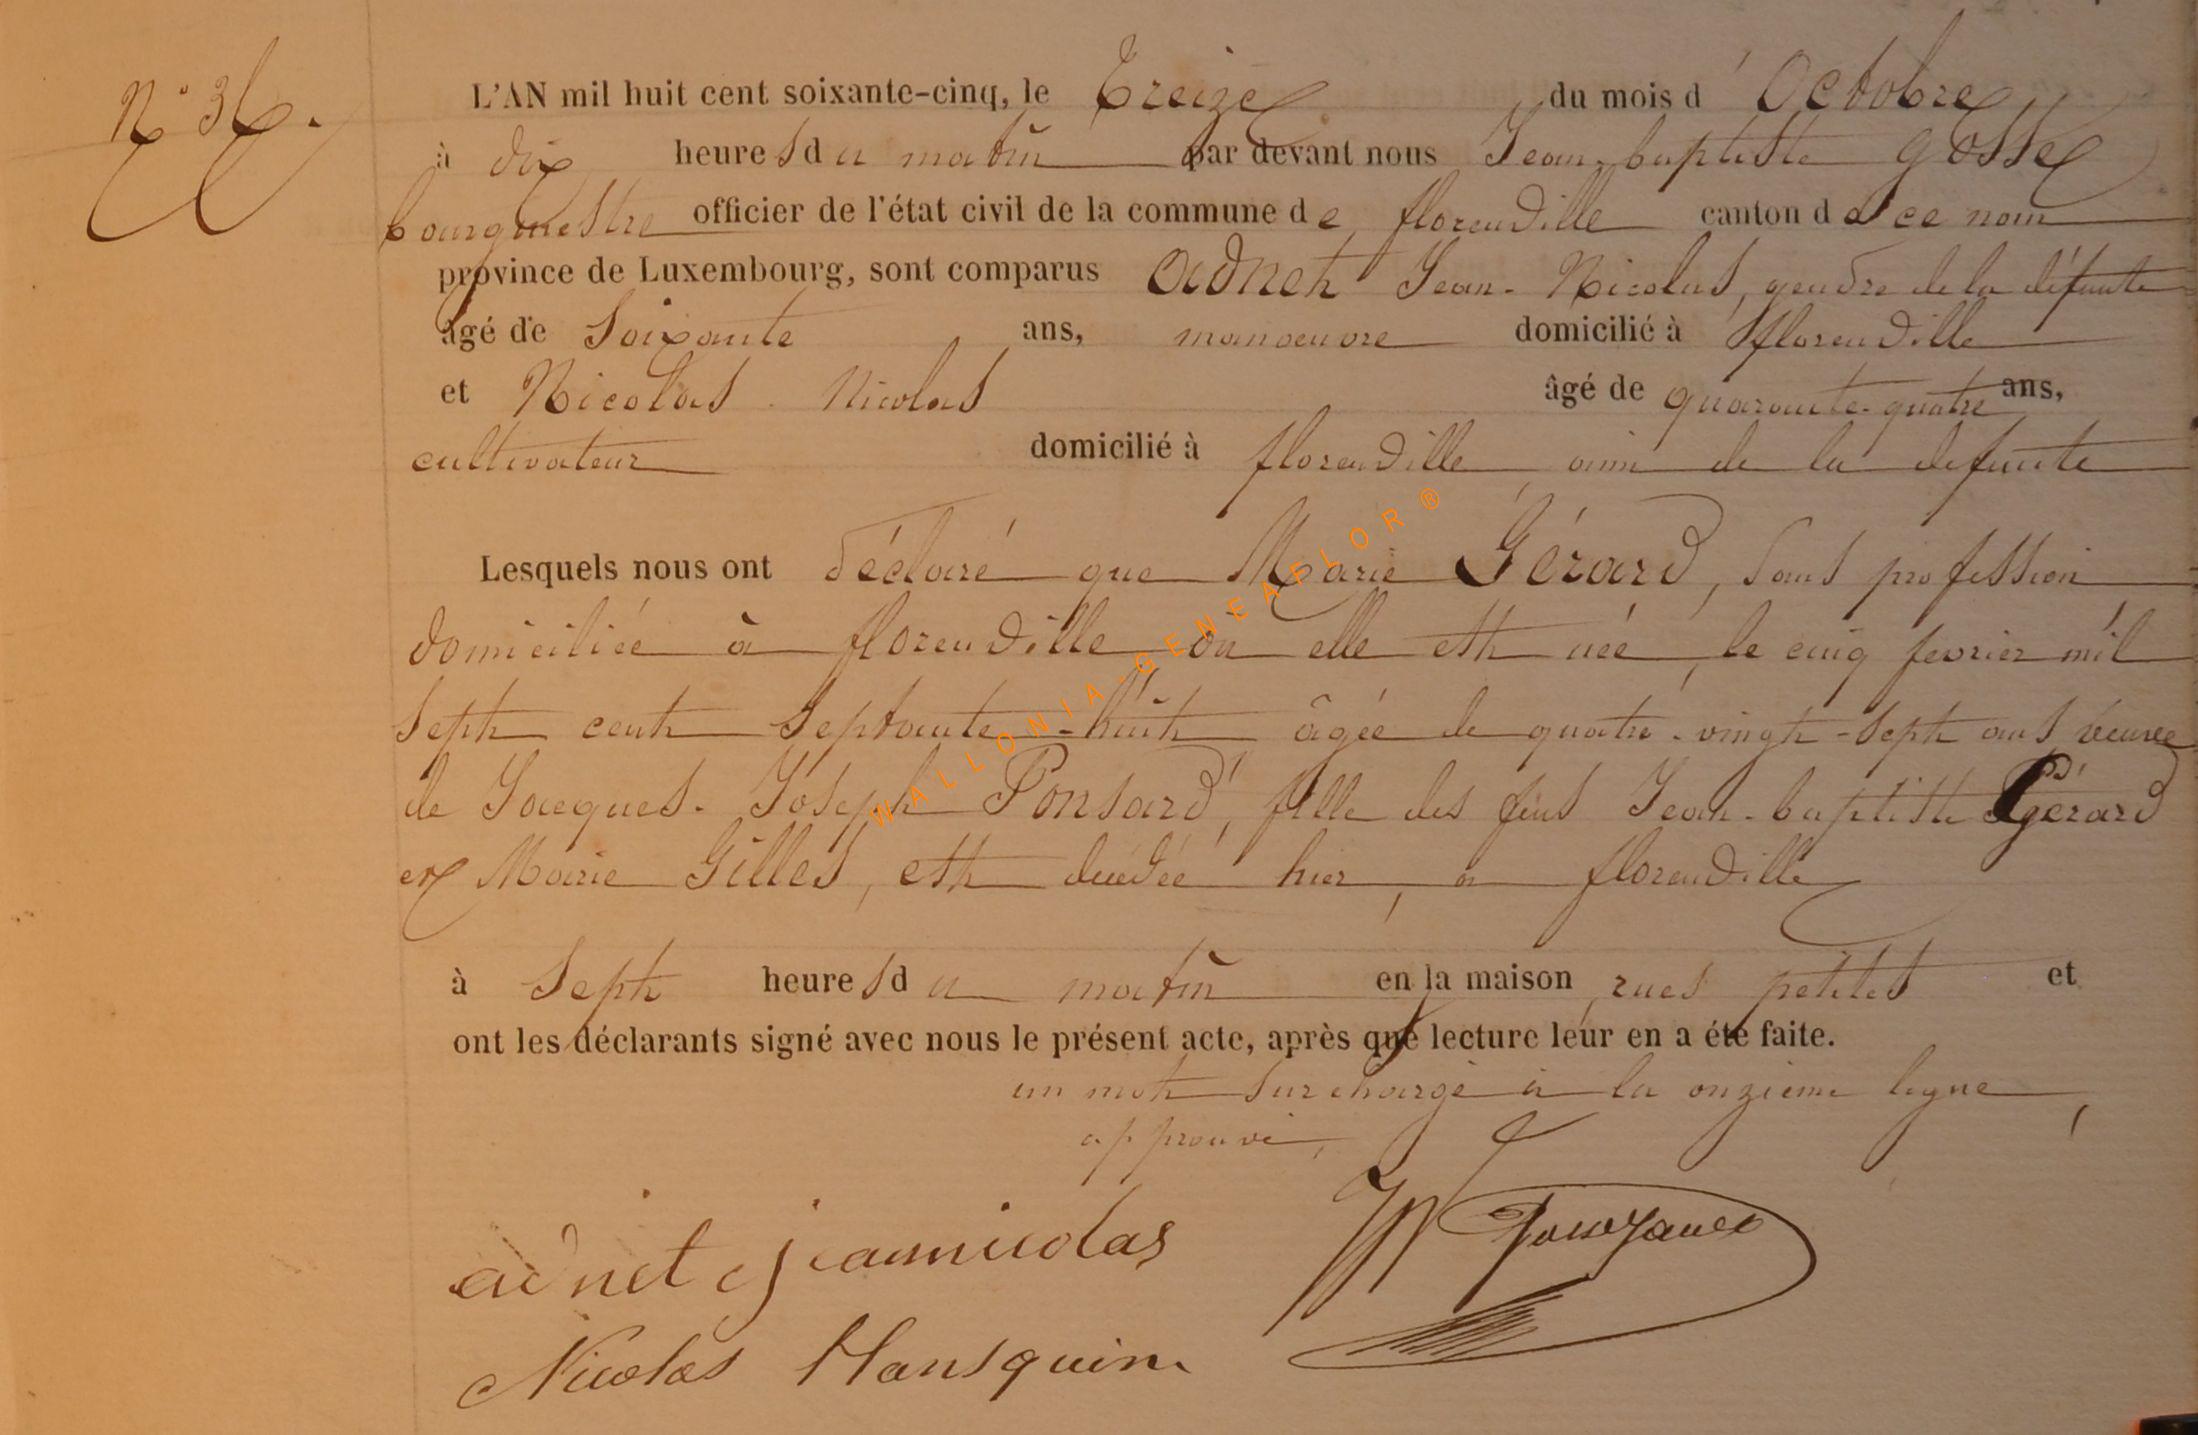 N° 36.
L'AN mil huit cent soixante-cinq, le treize du mois d'Octobre,
à dix heures du matin par devant nous Jean-baptiste Gosse
bourgmestre officier de l'état civil de la commune de florenville canton de ce nom
province de Luxembourg, sont comparus Adnet Jean-Nicolas, gendre de la défunte
âgé de soixante ans, manoeuvre domicilié à florenville
et Nicolas Nicolas âgé de quarante-quatre ans,
cultivateur domicilié à florenville ami de la defunte
Lesquels nous ont déclaré que Marie Gérard, sans profession
domiciliée à florenville où elle est née, le cinq fevrier mil
sept cent septante-huit âgée de quatre-vingt-sept ans veuve
de Jacques-Joseph Ponsard, fille des feus Jean-baptiste Gérard
et Marie Gilles, est décédée hier, à florenville
à sept heures du matin en la maison rues petites et
ont les déclarants signé avec nous le présent acte, après que lecture leur en a été faite.
un mot surchargé à la onzieme ligne,
approuvé,
adnet jeannicolas
Nicolas Hansquin
WALLONIA-GENEAFLOR®